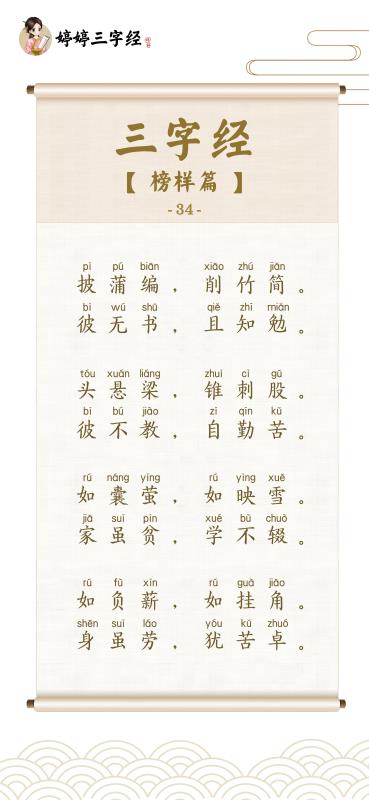 婷婷三字经
三字经
【 榜样篇 】
-34-
pī pú biān xiāo zhú jiǎn
披蒲编，削竹简。
bǐ wú shū qiě zhī miǎn
彼无书，且知勉。
tóu xuán liáng zhuī cì gǔ
头悬梁，锥刺股。
bǐ bú jiào zì qín kǔ
彼不教，自勤苦。
rú náng yíng rú yìng xuě
如囊萤，如映雪。
jiā suī pín xué bù chuò
家虽贫，学不辍。
rú fù xīn rú guà jiǎo
如负薪，如挂角。
shēn suī láo yóu kǔ zhuó
身虽劳，犹苦卓。